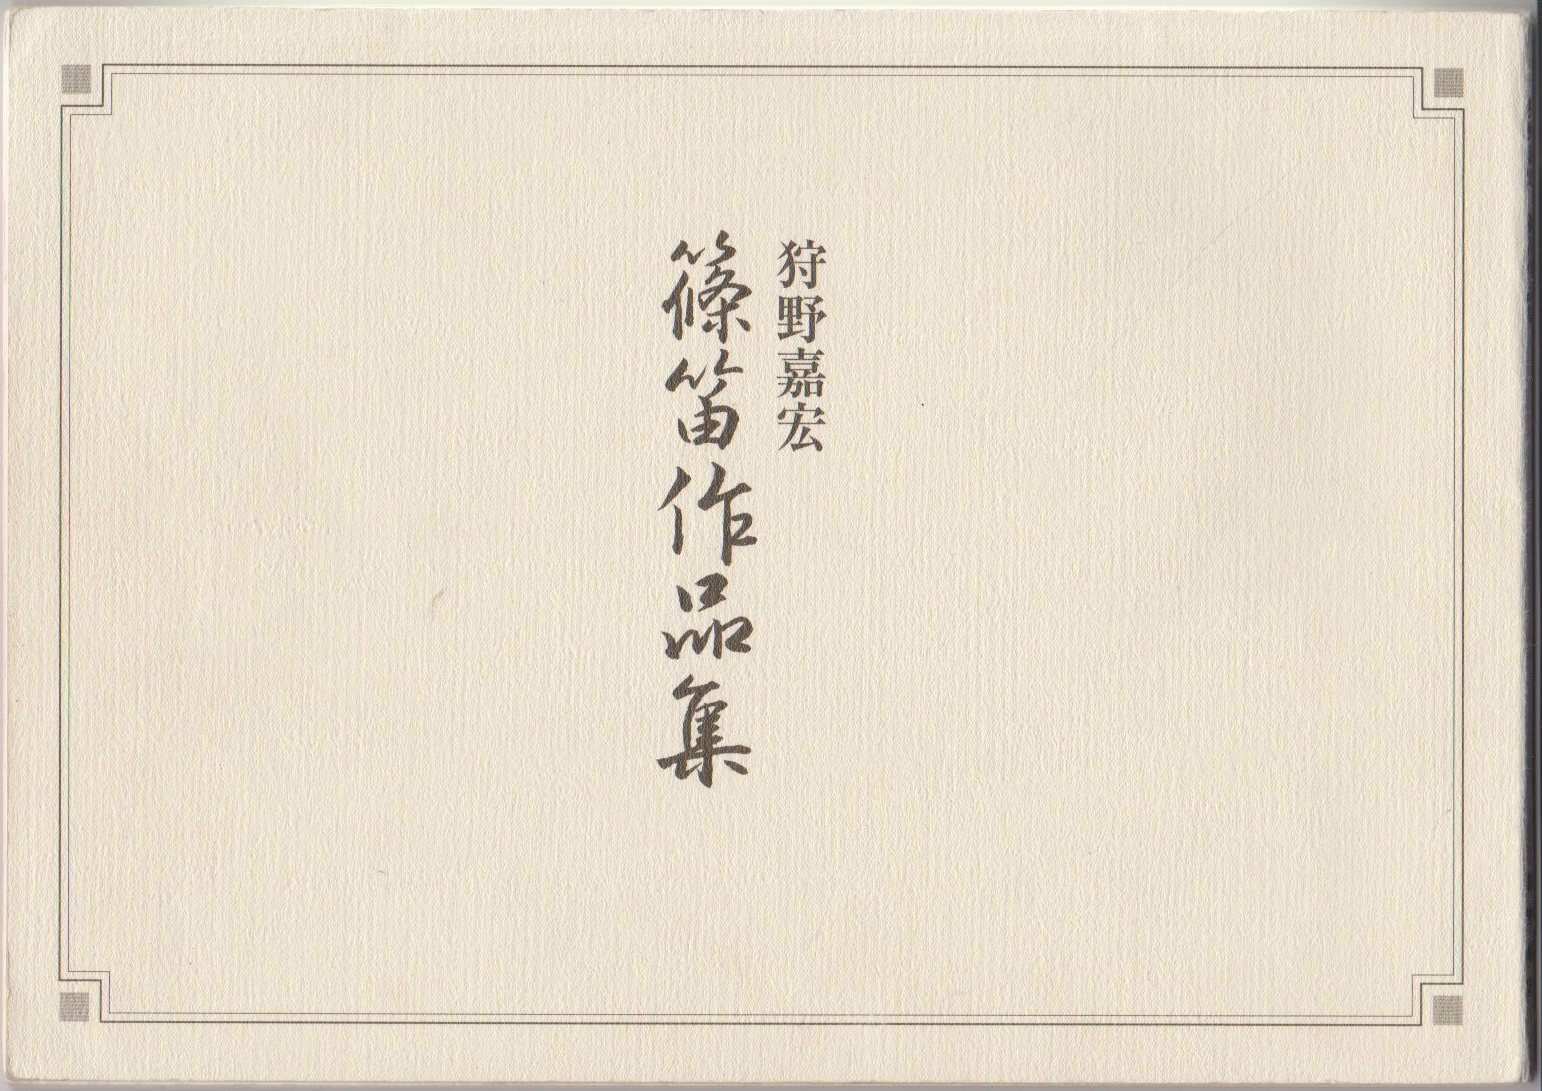 狩野嘉宏
篠笛作品集